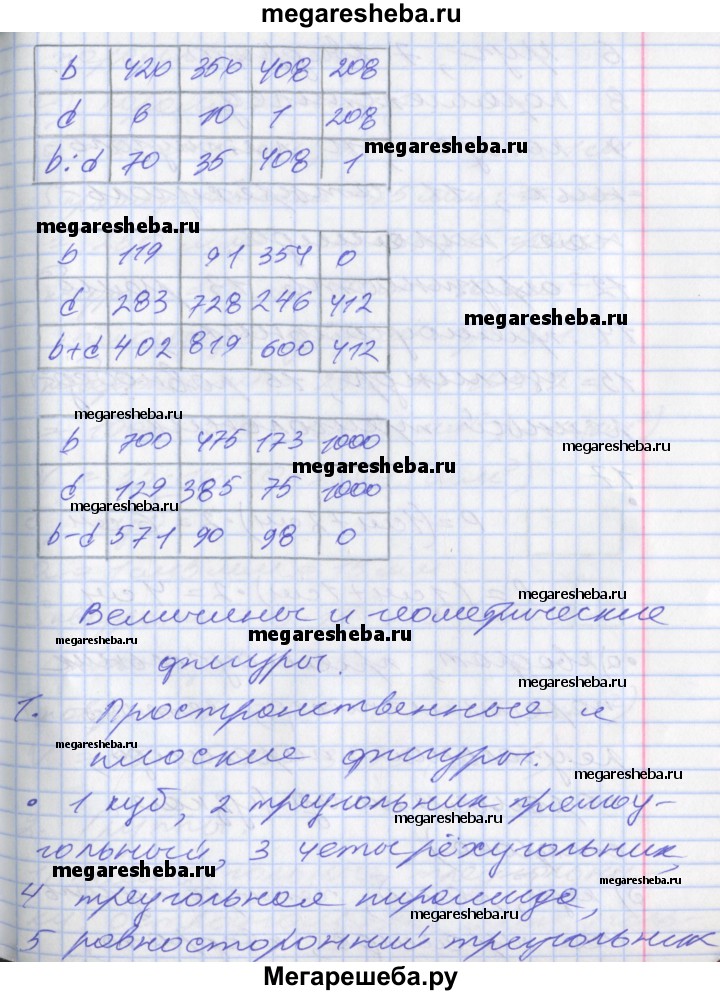 megaresheba.ru
b 420 350 408 208
d 6 10 1 208
b:d 70 35 408 1
megaresheba.ru
megaresheba.ru
b 119 91 354 0
d 283 728 246 412
megaresheba.ru
b+d 402 819 600 412
megaresheba.ru
b 700 475 173 1000
megaresheba.ru
d 129 385 75 1000
megaresheba.ru
b-d 571 90 98 0
megaresheba.ru
Величины и геометрические
megaresheba.ru
megaresheba.ru
фигуры.
megaresheba.ru
1. Пространственные и
megaresheba.ru
плоские фигуры.
• 1 куб, 2 треугольник прямоу-
megaresheba.ru
гольный, 3 четырёхугольник,
megaresheba.ru
megaresheba.ru
4 треугольная пирамида,
megaresheba.ru
5 равносторонний треугольник
Мегарешеба.ру